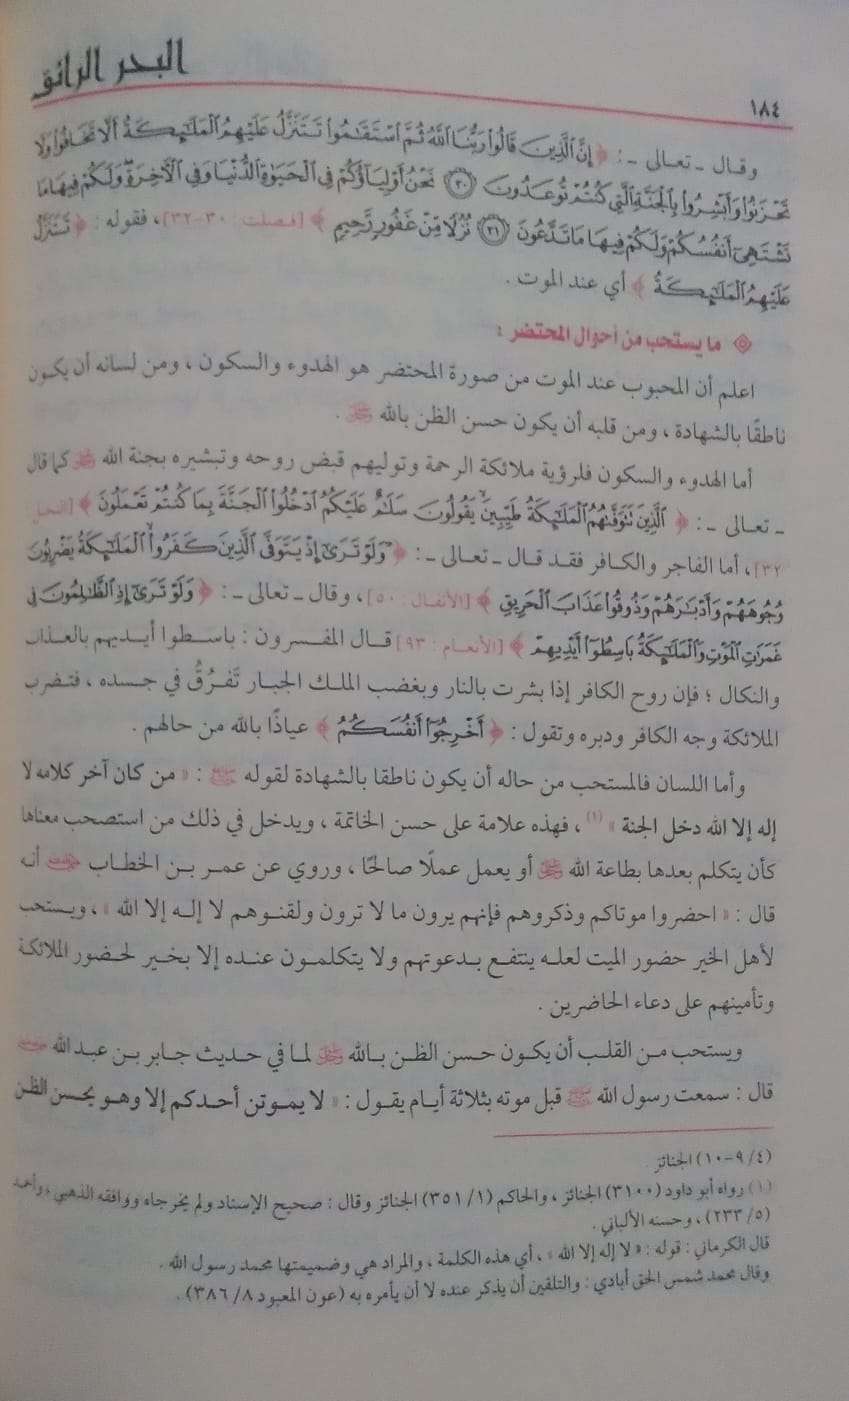 ١٨٤
البحر الرائق
وقال ـ تعالى ـ : ﴿ إِنَّ الَّذِينَ قَالُوا رَبُّنَا اللَّهُ ثُمَّ اسْتَقَامُوا تَتَنَزَّلُ عَلَيْهِمُ الْمَلَائِكَةُ أَلَّا تَخَافُوا وَلَا
تَحْزَنُوا وَأَبْشِرُوا بِالْجَنَّةِ الَّتِي كُنتُمْ تُوعَدُونَ ﴿٣٠﴾ نَحْنُ أَوْلِيَاؤُكُمْ فِي الْحَيَاةِ الدُّنْيَا وَفِي الْآخِرَةِ وَلَكُمْ فِيهَا مَا
تَشْتَهِي أَنفُسُكُمْ وَلَكُمْ فِيهَا مَا تَدَّعُونَ ﴿٣١﴾ نُزُلًا مِّنْ غَفُورٍ رَّحِيمٍ ﴾ [فصلت : ٣٠-٣٢] ، فقوله : ﴿ تَتَنَزَّلُ
عَلَيْهِمُ الْمَلَائِكَةُ ﴾ أي عند الموت .
ما يستحب من أحوال المحتضر :
اعلم أن المحبوب عند الموت من صورة المحتضر هو الهدوء والسكون ، ومن لسانه أن يكون
ناطقًا بالشهادة ، ومن قلبه أن يكون حسن الظن بالله ﷿ .
أما الهدوء والسكون فلرؤية ملائكة الرحمة وتوليهم قبض روحه وتبشيره بجنة الله ﷿ كما قال
ـ تعالى ـ : ﴿ الَّذِينَ تَتَوَفَّاهُمُ الْمَلَائِكَةُ طَيِّبِينَ يَقُولُونَ سَلَامٌ عَلَيْكُمُ ادْخُلُوا الْجَنَّةَ بِمَا كُنتُمْ تَعْمَلُونَ ﴾ [النحل :
٣٢] ، أما الفاجر والكافر فقد قال ـ تعالى ـ : ﴿ وَلَوْ تَرَىٰ إِذْ يَتَوَفَّى الَّذِينَ كَفَرُوا الْمَلَائِكَةُ يَضْرِبُونَ
وُجُوهَهُمْ وَأَدْبَارَهُمْ وَذُوقُوا عَذَابَ الْحَرِيقِ ﴾ [الأنفال : ٥٠] ، وقال ـ تعالى ـ : ﴿ وَلَوْ تَرَىٰ إِذِ الظَّالِمُونَ فِي
غَمَرَاتِ الْمَوْتِ وَالْمَلَائِكَةُ بَاسِطُوا أَيْدِيهِمْ ﴾ [الأنعام : ٩٣] قال المفسرون : باسطوا أيديهم بالعذاب
والنكال ؛ فإن روح الكافر إذا بشرت بالنار وبغضب الملك الجبار تَفَرُقُ في جسده ، فتضرب
الملائكة وجه الكافر ودبره وتقول : ﴿ أَخْرِجُوا أَنفُسَكُمُ ﴾ عياذًا بالله من حالهم .
وأما اللسان فالمستحب من حاله أن يكون ناطقا بالشهادة لقوله ﷺ : « من كان آخر كلامه لا
إله إلا الله دخل الجنة » (١) ، فهذه علامة على حسن الخاتمة ، ويدخل في ذلك من استصحب معناها
كأن يتكلم بعدها بطاعة الله ﷿ أو يعمل عملًا صالحًا ، وروي عن عمر بن الخطاب رضي الله عنه أنه
قال : « احضروا موتاكم وذكروهم فإنهم يرون ما لا ترون ولقنوهم لا إله إلا الله » ، ويستحب
لأهل الخير حضور الميت لعله ينتفع بدعوتهم ولا يتكلمون عنده إلا بخير لحضور الملائكة
وتأمينهم على دعاء الحاضرين .
ويستحب من القلب أن يكون حسن الظن بالله ﷿ لما في حديث جابر بن عبد الله رضي الله عنه
قال : سمعت رسول الله ﷺ قبل موته بثلاثة أيام يقول : « لا يموتن أحدكم إلا وهو يحسن الظن
(٤/ ٩-١٠) الجنائز .
(١) رواه أبو داود (٣١٠٠) الجنائز ، والحاكم (١/ ٣٥١) الجنائز وقال : صحيح الإسناد ولم يخرجاه ووافقه الذهبي ، وأحمد
(٥/ ٢٣٣) ، وحسنه الألباني .
قال الكرماني : قوله : « لا إله إلا الله » ، أي هذه الكلمة ، والمراد هي وضميمتها محمد رسول الله .
وقال محمد شمس الحق أبادي : والتلقين أن يذكر عنده لا أن يأمره به (عون المعبود ٨/ ٣٨٦) .